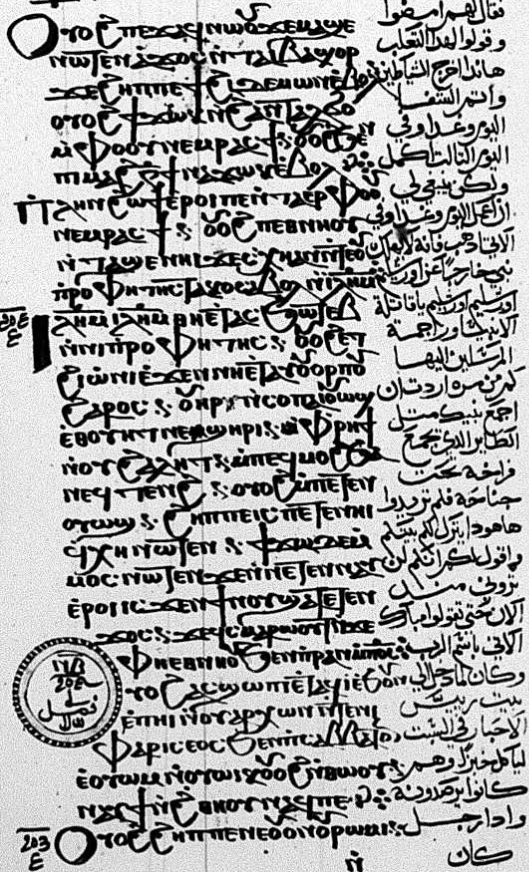 ⲟⲩⲟϩ ⲡⲉϫⲁϥ ⲛⲱⲟⲩ ϫⲉ ⲙⲁϣⲉ
ⲛⲱⲧⲉⲛ ⲁϫⲟⲥ ⲛⲧⲁⲓⲃⲁϣⲟⲣ
ϫⲉ ϩⲏⲡⲡⲉ ϯϩⲓ ⲇⲉⲙⲱⲛ ⲉⲃⲟⲗ
ⲟⲩⲟϩ ϯϫⲱⲕ ⲛϩⲁⲛⲧⲁⲗϭⲟ
ⲙⲫⲟⲟⲩ ⲛⲉⲙ ⲣⲁⲥϯ ⲟⲩⲟϩ ϧⲉⲛ
ⲡⲓⲙⲁϩⲅ̅ ϯⲛⲁϫⲱⲕ ⲉⲃⲟⲗ
ⲡⲗⲏⲛ ϩⲱϯ ⲉⲣⲟⲓ ⲡⲉ ⲛⲧⲁⲉⲣ ⲫⲟⲟⲩ
ⲛⲉⲙ ⲣⲁⲥϯ ⲟⲩⲟϩ ⲡⲉⲑⲛⲏⲟⲩ
ⲛⲧⲁϣⲉ ⲛⲏⲓ ϫⲉ ⲥⲭⲏ ⲁⲛ ⲛⲧⲉ ⲟⲩ
ⲡⲣⲟⲫⲏⲧⲏⲥ ⲧⲁⲕⲟ ⲥⲁⲃⲟⲗ ⲛⲓⲗⲏⲙ
ⲓⲗⲏⲙ ⲓⲗⲏⲙ ⲑⲏⲉⲧⲁⲥϧⲱⲧⲉⲃ
ⲛⲛⲓⲡⲣⲟⲫⲏⲧⲏⲥ ⲟⲩⲟϩ ⲉⲧ
ϩⲓⲱⲛⲓ ⲉϫⲉⲛ ⲛⲏⲉⲧⲁⲩⲟⲩⲟⲣⲡⲟⲩ
ϩⲁⲣⲟⲥ ⲟⲩⲏⲣ ⲛⲥⲟⲡ ⲁⲓⲟⲩⲱϣ
ⲉⲑⲟⲩⲉⲧ ⲛⲉϣⲏⲣⲓ ⲙⲫⲣⲏϯ
ⲛⲟⲩϩⲁⲗⲏⲧ ⲙⲡⲉϥⲙⲟϩ
ⲛⲉϥⲧⲉⲛϩ ⲟⲩⲟϩ ⲙⲡⲉⲧⲉⲛ
ⲟⲩⲱϣ ϩⲏⲡⲡⲉ ⲓⲥ ⲡⲉⲧⲉⲛⲏⲓ
ϥⲭⲏ ⲛⲱⲧⲉⲛ ϯϫⲱ ⲇⲉ ⲙ
ⲙⲟⲥ ⲛⲱⲧⲉⲛ ϫⲉ ⲛⲛⲉⲧⲉⲛⲛⲁⲩ
ⲉⲣⲟⲓ ⲓⲥϫⲉⲛ ϯⲛⲟⲩ ϣⲁⲧⲉⲧⲉⲛ
ϫⲟⲥ ϫⲉ ϥⲥⲙⲁⲣⲱⲟⲩⲧ ⲛϫⲉ
ⲫⲏⲉⲑⲛⲏⲟⲩ ϧⲉⲛ ⲫⲣⲁⲛ ⲙⲡϭⲥ
ⲟⲩⲟϩ ⲁⲥϣⲱⲡⲓ ⲉⲧⲁϥⲓ ⲉϧⲟⲩⲛ
ⲉⲡⲏⲓ ⲛⲟⲩⲁⲣⲭⲱⲛ ⲛⲧⲉ ⲛⲓ
ⲫⲁⲣⲓⲥⲉⲟⲥ ϧⲉⲛ ⲡⲥⲁⲃⲃⲁⲧⲟⲛ
ⲉⲟⲩⲱⲙ ⲛⲟⲩⲱⲓⲕ ⲟⲩⲟϩ ⲛⲑⲱⲟⲩ
ⲛⲁⲩϯ ⲛϩⲑⲏⲟⲩ ⲉⲣⲟϥ ⲡⲉ
ⲟⲩⲟϩ ϩⲏⲡⲡⲉ ⲛⲉ ⲟⲩⲟⲛ ⲟⲩⲣⲱⲙⲓ
فقال لهم امضوا
وقولوا لهذا الثعلب
هانذا اخرج الشياطين
واتمم الشفا
اليوم وغدا وفي
اليوم الثالث اكمل
ولكن ينبغي لي
ان اعمل اليوم وغدا وفي
الاتي اذهب فانه لا يهلك
نبي خارجا عن اورشليم
اورشليم اورشليم يا قاتلة
الانبيا وراجمة
المرسلين اليها
كم من مرة اردت ان
اجمع بنيك مثل
الطاير الذي يجمع
فراخه تحت
جناحه فلم تريدوا
هاهوذا يترك لكم بيتكم
واقول لكم انكم لن
تروني منذ
الان حتى تقولوا مبارك
الاتي باسم الرب
وكان لما دخل الى
بيت رييس
الاحبار في السبت
لياكل خبزا وهم
كانوا يرصدونه
واذا رجل
كان